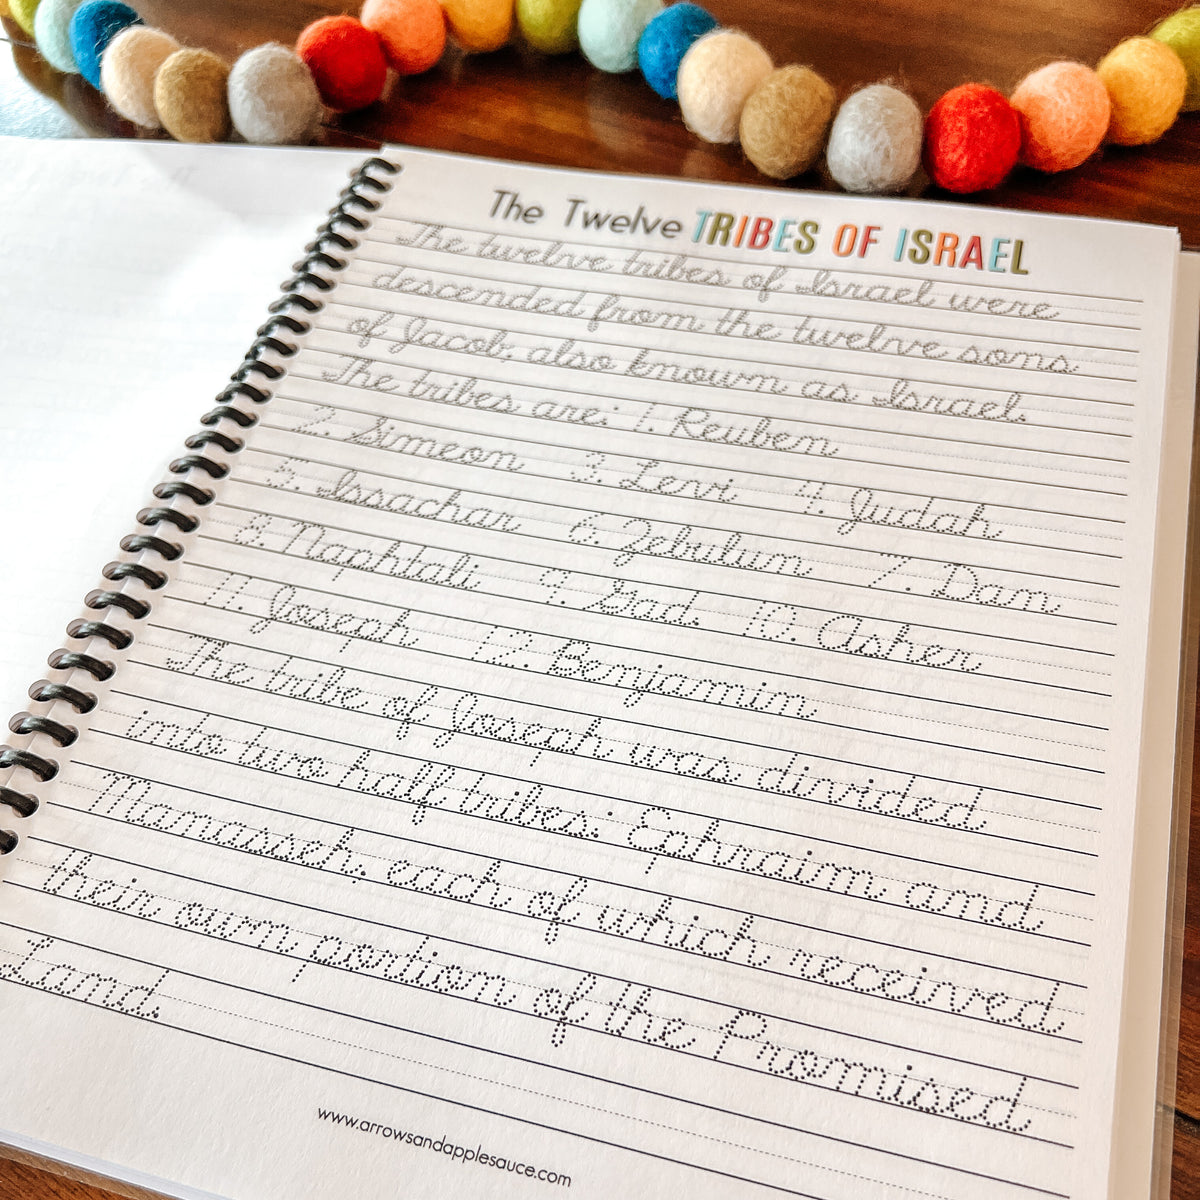 The Twelve TRIBES OF ISRAEL
The twelve tribes of Israel were
descended from the twelve sons
of Jacob, also known as Israel.
The tribes are: 1. Reuben
2. Simeon 3. Levi 4. Judah
5. Issachar 6. Zebulum 7. Dan
8. Naphtali 9. Gad 10. Asher
11. Joseph 12. Benjamin
The tribe of Joseph was divided
into two half tribes: Ephraim and
Manasseh, each of which received
their own portion of the Promised
Land.
www.arrowsandapplesauce.com